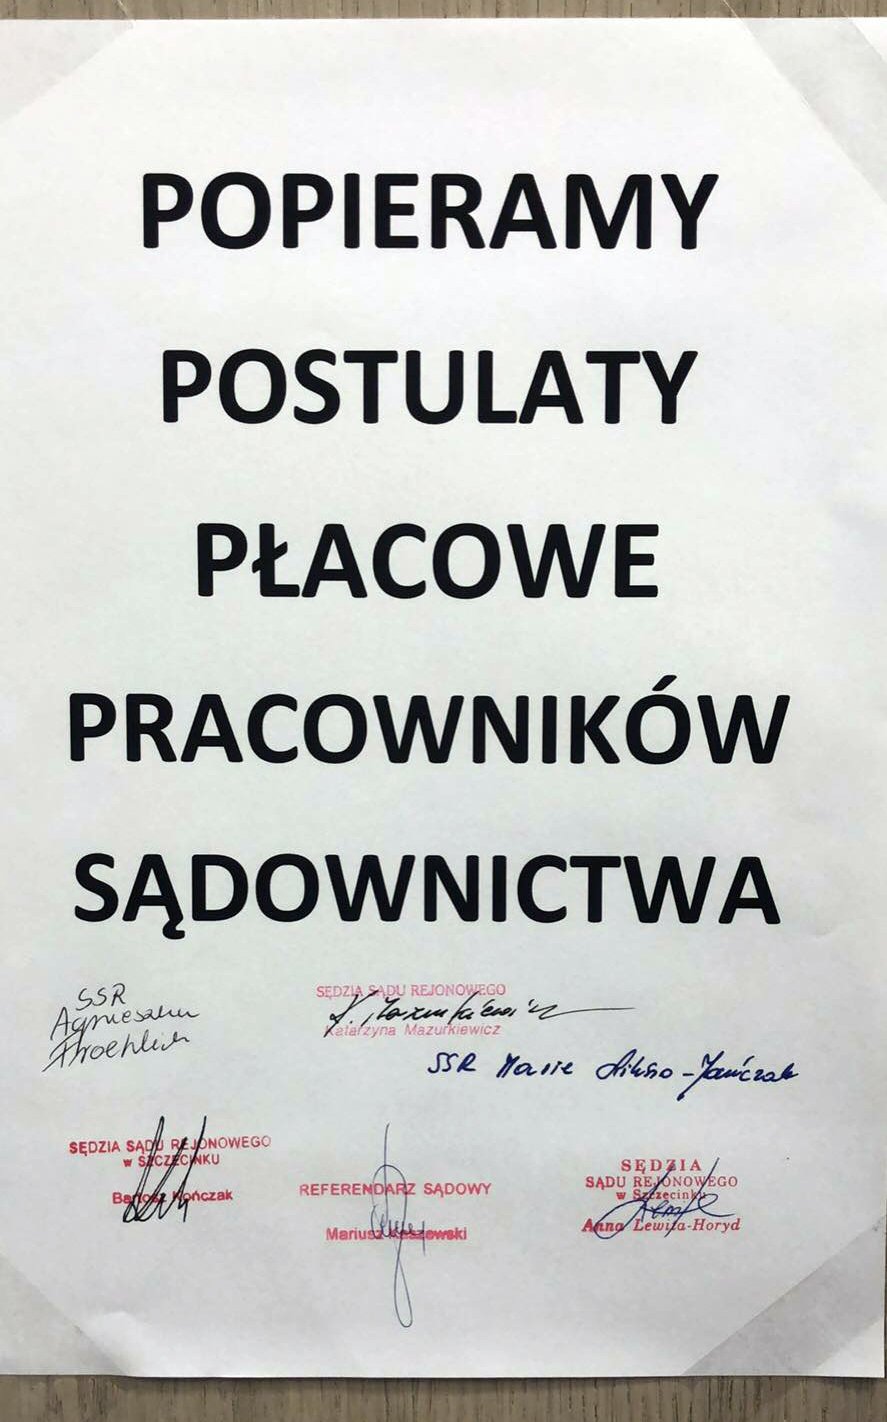 POPIERAMY
POSTULATY
PŁACOWE
PRACOWNIKÓW
SĄDOWNICTWA
SSR
Agnieszka
SĘDZIA SĄDU REJONOWEGO
Katarzyna Mazurkiewicz
SSR
SĘDZIA SĄDU REJONOWEGO
w SZCZECINKU
Bartosz Kończak
REFERENDARZ SĄDOWY
Mariusz
SĘDZIA
SĄDU REJONOWEGO
w Szczecinku
Anna Lewita-Horyd